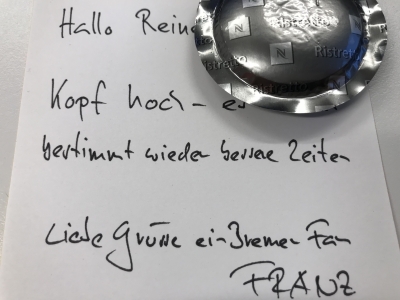 Hallo Rein
Kopf hoch – es
bestimmt wieder bessere Zeiten
Liebe Grüsse ein Bremer Fan
FRANZ
Ristretto
N
N
Ristretto